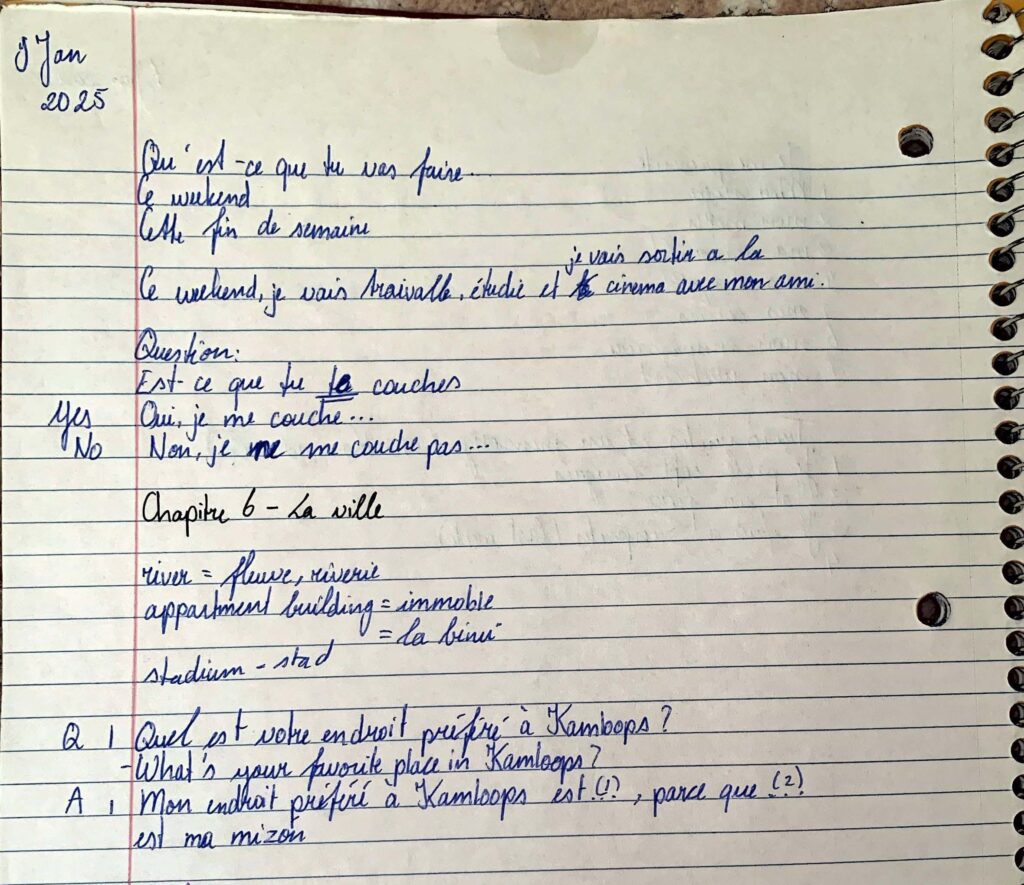 9 Jan
2025
Qu'est-ce que tu vas faire...
Ce weekend
Cette fin de semaine
je vais sortir a la
Ce weekend, je vais traivalle, étudie et cinema avec mon ami.
Question:
Est-ce que tu te couches
Yes Oui, je me couche...
No Non, je ne me couche pas...
Chapitre 6 - La ville
river = fleuve, riverie
appartment building = immoble
= la binui
stadium - stad
Q 1 Quel est votre endroit préféré à Kamloops?
- What's your favorite place in Kamloops?
A 1 Mon endroit préféré à Kamloops est (1), parce que (2)
est ma mizon